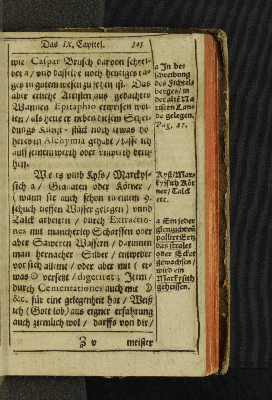 Das IX. Capitel. 345
wie Caspar Brusch davon schreibet
a/ und dasselbe noch heutiges tages
in gutem wesen zu sehen ist. Das
aber etliche Artisten aus gedachtem
Wannen Epitaphio erweisen wollen
/ als hette er neben diesem Scheidungs
Kunst-stück noch etwas höheres
in Alchymia gehabt / lasse ich
auff seinem werth oder unwerth beruhen.
Weis und Kyß / Marckysich
a / Granaten oder Körner /
( wann sie auch schon in einem 9.
schuch tieffen Wasser gelegen ) und
Talck arbeiten / durch Extractiones
mit mancherley Scharffen oder
aber Saweren Wassern / darinnen
man hernacher Silber / entweder
vor sich alleine / oder aber mit ( etwas
☉ versetz / digerirt ; Item /
durch Cementationes auch mit ☽
&c. für eine gelegenheit hat / Weiß
ich (Gott lob) aus eigner erfahrung
auch ziemlich wol / darffs von dir /
meister
a In des
beschreibung
des Fichtelberges /
in
der alt
gelegen.
Pag. 27.
Kyß / Marckysich
Körner /
Talck
etc.
a Ein jeder
das stralet
oder Ecket
gewachsen /
wird ein
Marckysich
geheissen.